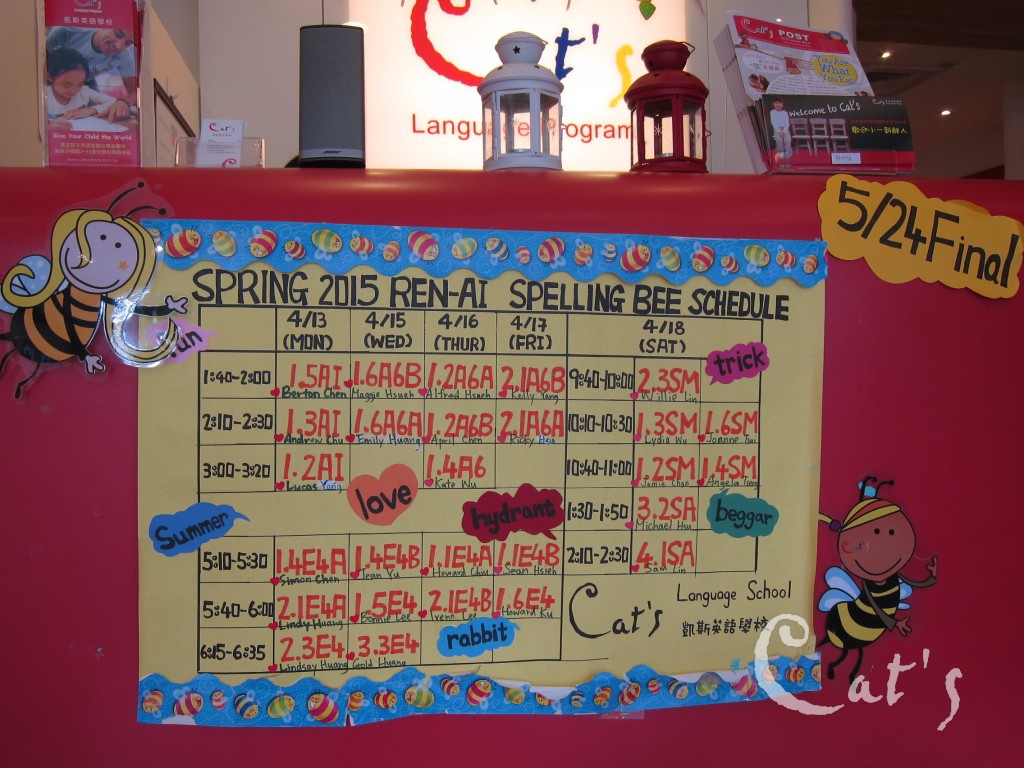 Cat's
Language Program
凱斯英語學校
Give Your Child the World
Cat's
Cat's
Language Program
Cat's POST
You Are
What
You Eat
Welcome to Cat's
5/24 Final
SPRING 2015 REN-AI SPELLING BEE SCHEDULE
4/13 4/15 4/16 4/17 4/18
(MON) (WED) (THUR) (FRI) (SAT)
fun
trick
1:40-2:00 1.5AI 1.6A6B 1.2A6A 2.1A6B 9:40-10:00 2.3SM
Berton Chen Maggie Hsueh Alfred Hsueh Kelly Yang Willie Lin
2:10-2:30 1.3AI 1.6A6A 1.2A6B 2.1A6A 10:10-10:30 1.3SM 1.6SM
Andrew Chu Emily Huang April Chen Ricky Hsu Lydia Wu Joanne Tsai
3:00-3:20 1.2AI 1.4A6 10:40-11:00 1.2SM 1.4SM
Lucas Yang Kate Wu Jamie Chan Angela Tseng
love
Summer
hydrant
1:30-1:50 3.2SA
Michael Hsu
beggar
5:10-5:30 1.4E4A 1.4E4B 1.1E4A 1.1E4B 2:10-2:30 4.1SA
Simon Chen Jean Yu Howard Chiu Sean Hsieh Sam Lin
5:40-6:00 2.1E4A 1.5E4 2.1E4B 1.6E4
Lindy Huang Bonnie Lee Irene Lee Howard Ku
6:15-6:35 2.3E4 3.3E4
Lindsay Huang Gold Huang
rabbit
Cat's Language School
凱斯英語學校
Cat's
Cat's